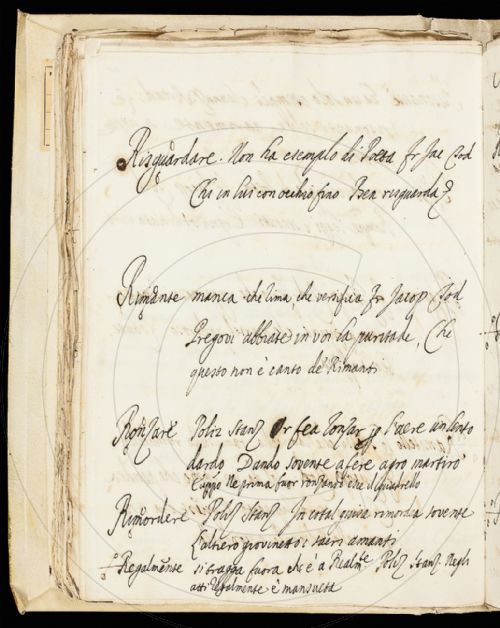 Rizguardare. Non ha esemplo di Poeta Fr Jac Tod
Chi in lui con occhio fino Ben risguarda
Rimante manca che rima, che versifica Fr Jacop Tod
Pregovi abbiate in voi la puritade, Che
questo non è canto de Rimanti
Ronzare Poliz Stanz Or fea ronzar p l'aere un lento
dardo Dando sovente a fere agro martiro
Ne prima fuor ronzando che il quadrello
Rimordere Poliz Stanz In cotal guisa rimordia sovente
L'altiero giovinetto i sacri amanti
Regalmente si tragga fuora che è a Realm.te Poliz Stanz Negli
atti regalmente è mansueta